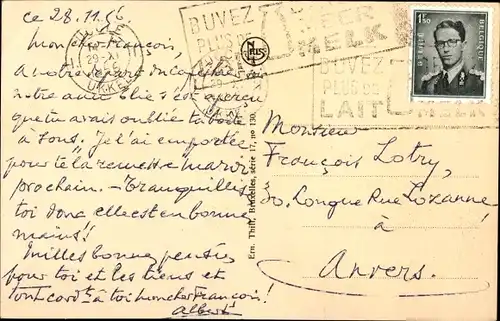 ce 28.11.56.
Mon cher François,
A notre départ du
notre ami Elie s'est aperçu
que tu avais oublié ta boîte
à sons. Je l'ai emportée
pour te la remettre mardi
prochain. - Tranquillise
toi donc elle est en bonnes
mains!
Milles bonnes pensées
pour toi et les tiens et
tout cordt à toi mon cher François!
Albert
Ern. Thill, Bruxelles, série 17, no 130.
NELS
BUVEZ
PLUS DE
MEER
MELK
UKKEL
BUVEZ
PLUS DE
LAIT
MELK
1F50
BELGIQUE
BELGIE
Monsieur
François Lotry,
30, Longue Rue Lozanne
à
Anvers.